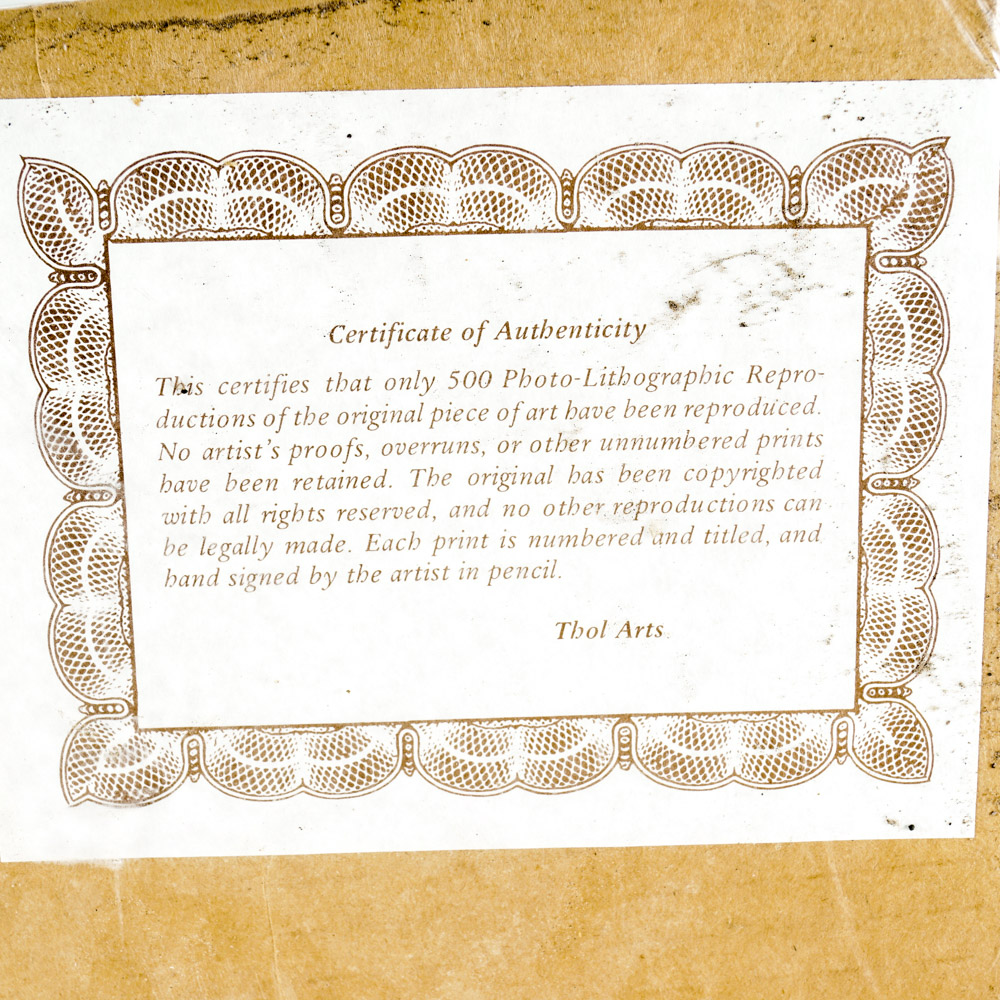 Certificate of Authenticity
This certifies that only 500 Photo-Lithographic Repro-
ductions of the original piece of art have been reproduced.
No artist's proofs, overruns, or other unnumbered prints
have been retained. The original has been copyrighted
with all rights reserved, and no other reproductions can
be legally made. Each print is numbered and titled, and
hand signed by the artist in pencil.
Thol Arts